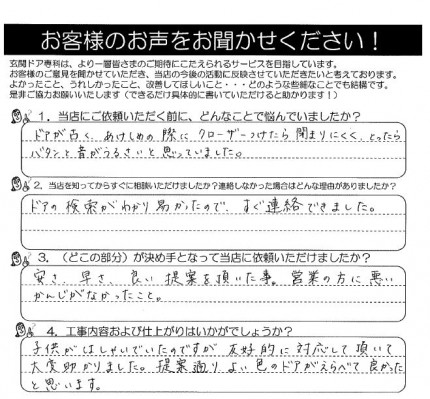 お客様のお声をお聞かせください！
玄関ドア専科は、より一層皆さまのご期待にこたえられるサービスを目指しています。
お客様のご意見を聞かせていただき、当店の今後の活動に反映させていただきたいと考えております。
よかったこと、うれしかったこと、改善してほしいこと・・・どのような些細なことでも結構です。
是非ご協力お願いいたします（できるだけ具体的に書いていただけると助かります！）
1．当店にご依頼いただく前に、どんなことで悩んでいましたか？
ドアが古く、あけしめの際にクローザーつけたら閉まりにくく、とったら
バタンと音がうるさいと思っていました。
2．当店を知ってからすぐに相談いただけましたか？連絡しなかった場合はどんな理由がありましたか？
ドアの検索がわかり易かったので、すぐ連絡できました。
3．（どこの部分）が決め手となって当店に依頼いただけましたか？
安さ、早さ、良い提案を頂いた事。営業の方に悪い
かんじがなかったこと。
4．工事内容および仕上がりはいかがでしょうか？
子供がはしゃいでいたのですが友好的に対応して頂いて
大変助かりました。提案通りよい色のドアがえらべて良かった
と思います。